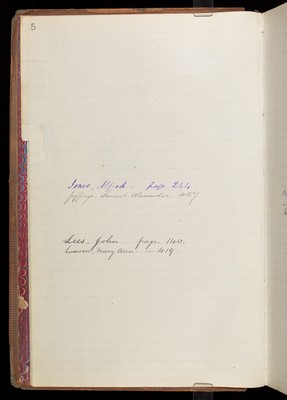 5
Jones, Alfred - page 244
Jeffreys, Samuel Alexander 457
Lees, John - page 140.
Lawson, Mary Ann - 419